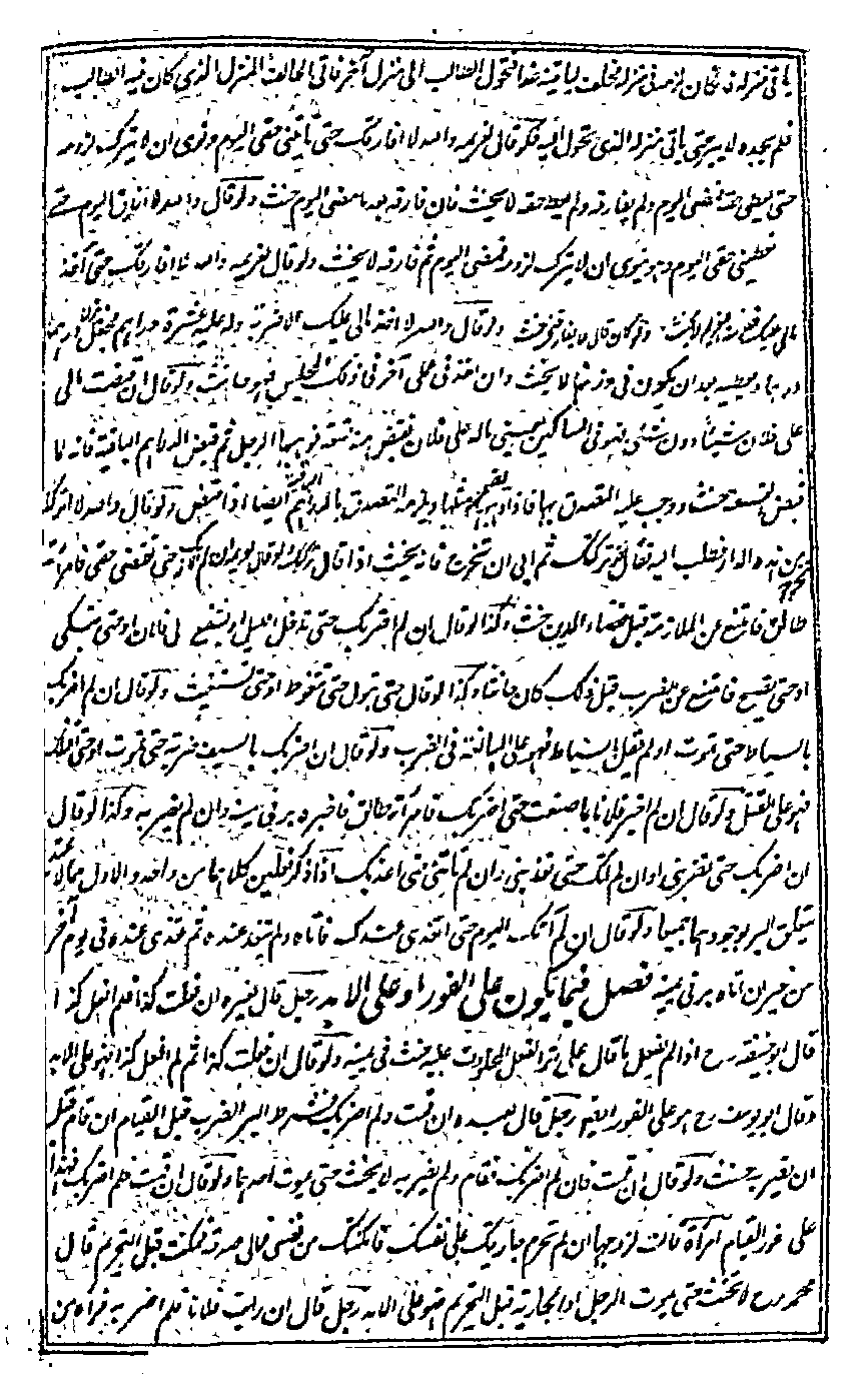 ياتى منزله فان كان لزمه فى منزله فحلف لياتينه غدا فتحول الطالب الى منزل آخر فاتى الحالف المنزل الذى كان فيه الطالب
فلم يجده لا يبر حتى ياتى منزله الذى تحول اليه ولو قال لغريمه والله لا افارقك حتى تعطينى حقى اليوم ونوى ان لا يترك لزومه
حتى يعطيه حقه فمضى اليوم ولم يفارقه ولم يعطه حقه لا يحنث فان فارقه بعد ما مضى اليوم حنث ولو قال والله لا افارقك اليوم حتى
تعطينى حقى اليوم وهو ينوى ان لا يترك لزومه فمضى اليوم ثم فارقه لا يحنث ولو قال لغريمه والله لا افارقك حتى آخذ
مالى عليك ولو كان قال لا يفارقنى حنث ولو قال والله لا آخذ مالى عليك الا ضربة وله عليه عشرة دراهم فجعل يزن درهما
درهما ويعطيه بعد ان يكون فى وزنها لا يحنث وان اخذ فى عمل آخر فى ذلك المجلس فهو حانث ولو قال ان قبضت مالى
على فلان شيئا دون شئ فهو فى المساكين يعنى ماله على فلان فقبض منه تسعة فوهبها الرجل ثم قبض الدراهم الباقية فانه لا
قبض تسعة حنث ووجب عليه التصدق بها ويلزمه التصدق بالدراهم ايضا اذا قبض ولو قال والله لا اتركك
من هذه الدار فطلب اليه فقال قد تركتك ثم ابى ان تخرج فانه يحنث اذا قال تركتك ولو قال لمديونه ان لم حتى تقضى حقى فامرأته
طالق فامتنع عن الملازمة قبل قضاء الدين حنث وكذا لو قال ان لم اضربك حتى يدخل الليل او يشفع لى فلان او حتى تشتكى
او حتى تصيح فامتنع عن الضرب قبل ذلك كان حانثا وكذا لو قال حتى تبول حتى تغوط او حتى تستغيث ولو قال ان لم اضربك
بالسياط حتى تموت او لم يقل السياط فهو على المبالغة فى الضرب ولو قال ان لم اضربك بالسيف ضربة حتى تموت او حتى اقتلك
فهو على القتل ولو قال ان لم اخبر فلانا بما صنعت حتى اضربك فامرأته طالق فاخبره بر فى يمينه وان لم يضربه وكذا لو قال
ان اضربك حتى تضربنى او ان لم آتك حتى تغذينى وان لم تاتنى حتى اغذيك اذا ذكر فعلين كلاهما من واحد والاول مما لا يمتد
يتعلق البر بوجودهما جميعا ولو قال ان لم آتك اليوم حتى اتغدى عندك فاتاه ولم يتغد عنده ثم تغدى عنده فى يوم آخر
من غير ان اتاه بر فى يمينه فصل فيما يكون على الفور او على الابد رجل قال لغيره ان فعلت كذا فلم افعل كذا
قال ابو حنيفة رح اذا لم يفعل ما قال على اثر الفعل المحلوف عليه حنث فى يمينه ولو قال ان فعلت كذا ثم لم افعل كذا فهو على الابد
وقال ابو يوسف رح هو على الفور ايضا رجل قال لعبده ان قمت ولم اضربك فشرط البر الضرب قبل القيام ان قام قبل
ان يضربه حنث ولو قال ان قمت فان لم اضربك فقام ولم يضربه لا يحنث حتى يموت احدهما ولو قال ان قمت فلم اضربك فهذا
على فور القيام امرأة قالت لزوجها ان لم تحرم جاريتك على نفسك فامكنك من نفسى فمالى صدقة فمكنت قبل التحريم قال
محمد رح لا تحنث حتى يموت الرجل او الجارية قبل التحريم هو على الابد رجل قال ان رايت فلانا فلم اضربه فراه من